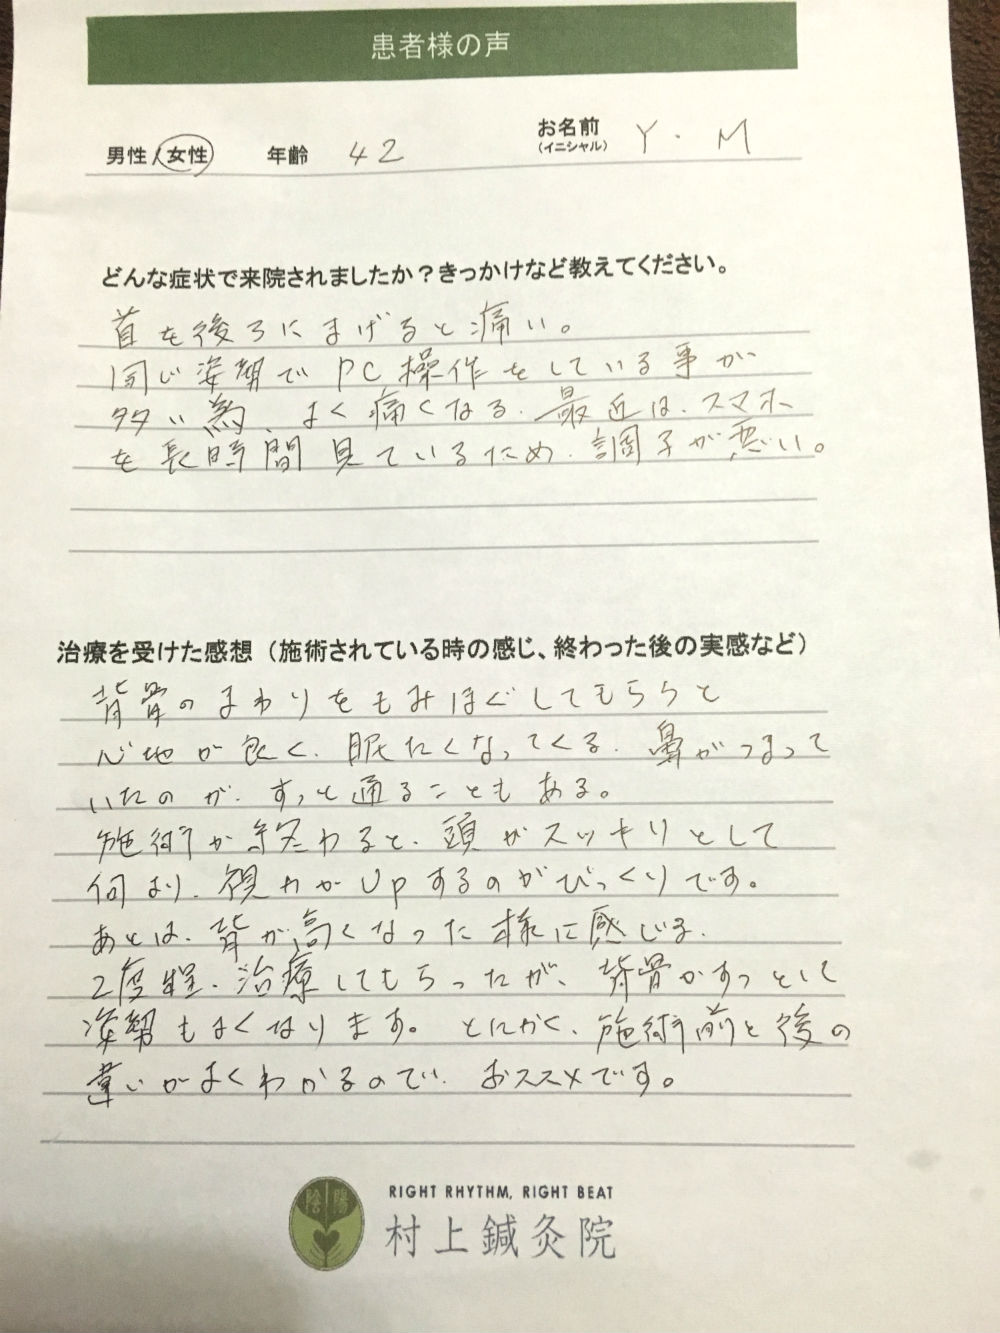 患者様の声
男性/女性 年齢 42 お名前(イニシャル) Y・M
どんな症状で来院されましたか?きっかけなど教えてください。
首を後ろにまげると痛い。
同じ姿勢でPC操作をしている事が
多い為、よく痛くなる。最近は、スマホ
を長時間見ているため、調子が悪い。
治療を受けた感想(施術されている時の感じ、終わった後の実感など)
背骨のまわりをもみほぐしてもらうと
心地が良く、眠たくなってくる。鼻がつまって
いたのが、すっと通ることもある。
施術が終わると、頭がスッキリとして
何より、視力がUpするのがびっくりです。
あとは、背が高くなった様に感じる。
2度程、治療してもらったが、背骨がすっとして
姿勢もよくなります。とにかく、施術前と後の
違いがよくわかるので、おススメです。
陰陽
RIGHT RHYTHM, RIGHT BEAT
村上鍼灸院